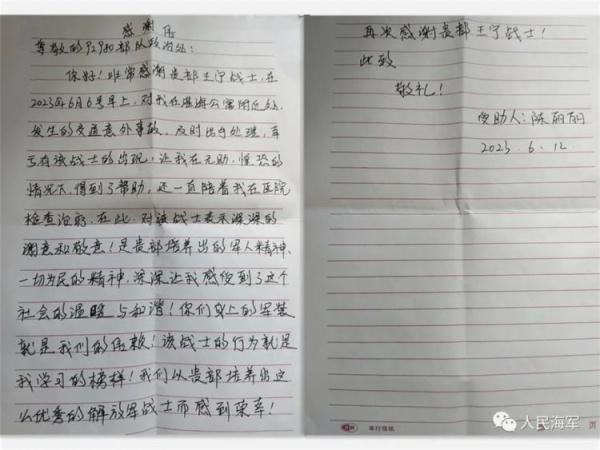 感谢信
尊敬的92980部队政治处：
你好！非常感谢贵部王宁战士，在
2023年6月6号早上，对我在滨海公寓附近所
发生的交通意外事故，及时出手处理，幸
亏有该战士的出现，让我在无助、慌恐的
情况下，得到了帮助，还一直陪着我在医院
检查治疗，在此，对该战士表示深深的
谢意和敬意！是贵部培养出的军人精神、
一切为民的精神，深深让我感受到了这个
社会的温暖与和谐！你们身上的军装
就是我们的依赖！该战士的行为就是
我学习的榜样！我们从贵部培养出这
么优秀的解放军战士而感到荣幸！
再次感谢贵部王宁战士！
此致
敬礼！
受助人：陈丽丽
2023.6.12
单行信纸
页
人民海军